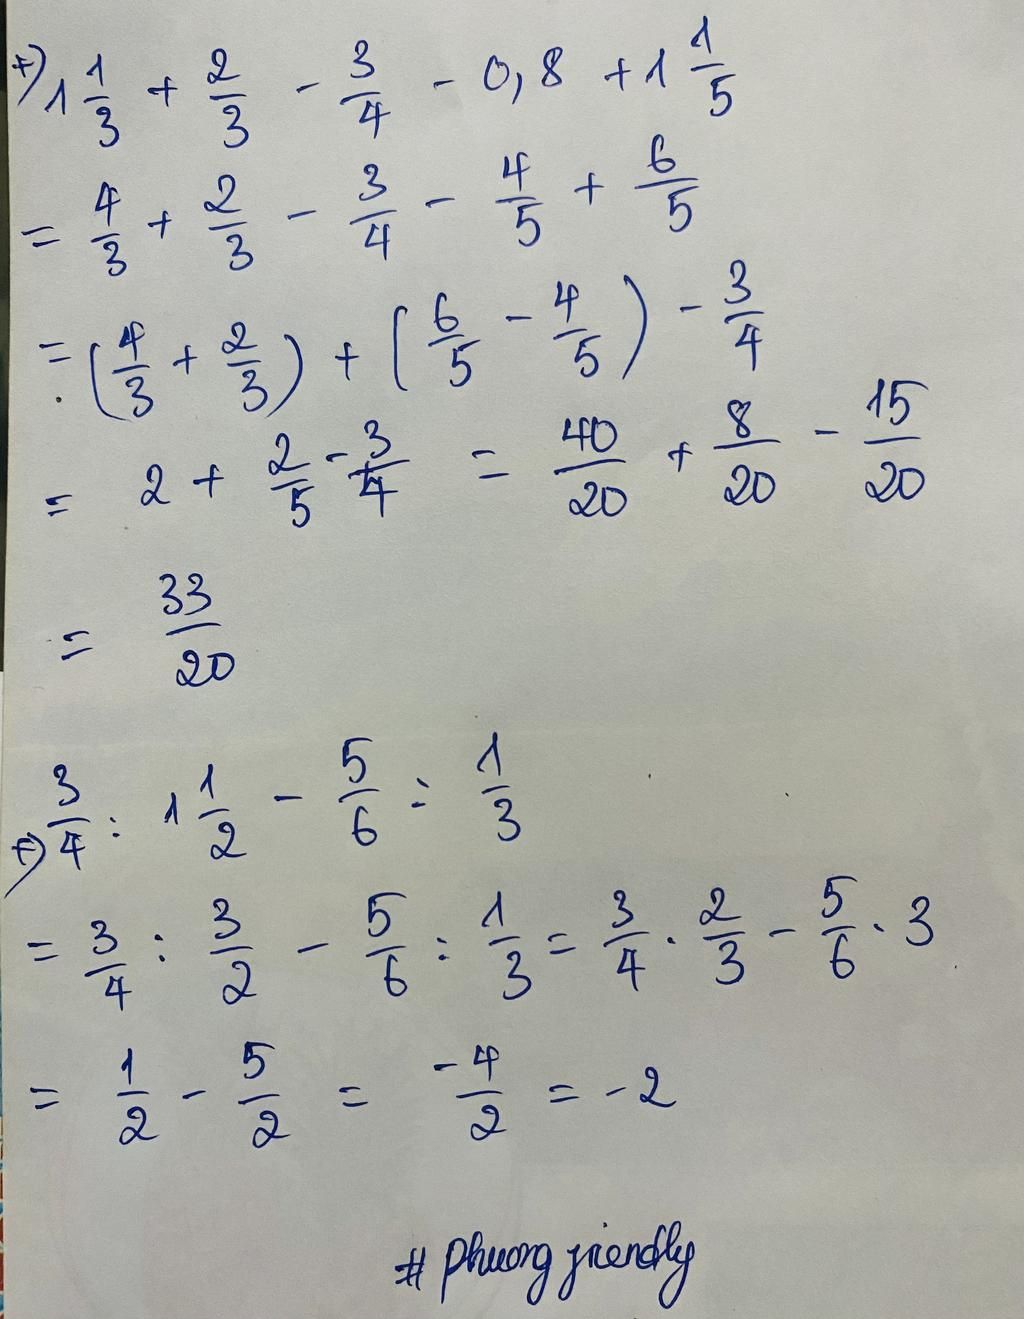 +) 1 1/3 + 2/3 - 3/4 - 0,8 + 1 1/5
= 4/3 + 2/3 - 3/4 - 4/5 + 6/5
= (4/3 + 2/3) + (6/5 - 4/5) - 3/4
= 2 + 2/5 - 3/4 = 40/20 + 8/20 - 15/20
= 33/20
+) 3/4 : 1 1/2 - 5/6 : 1/3
= 3/4 : 3/2 - 5/6 : 1/3 = 3/4 . 2/3 - 5/6 . 3
= 1/2 - 5/2 = -4/2 = -2
# Phuong friendly